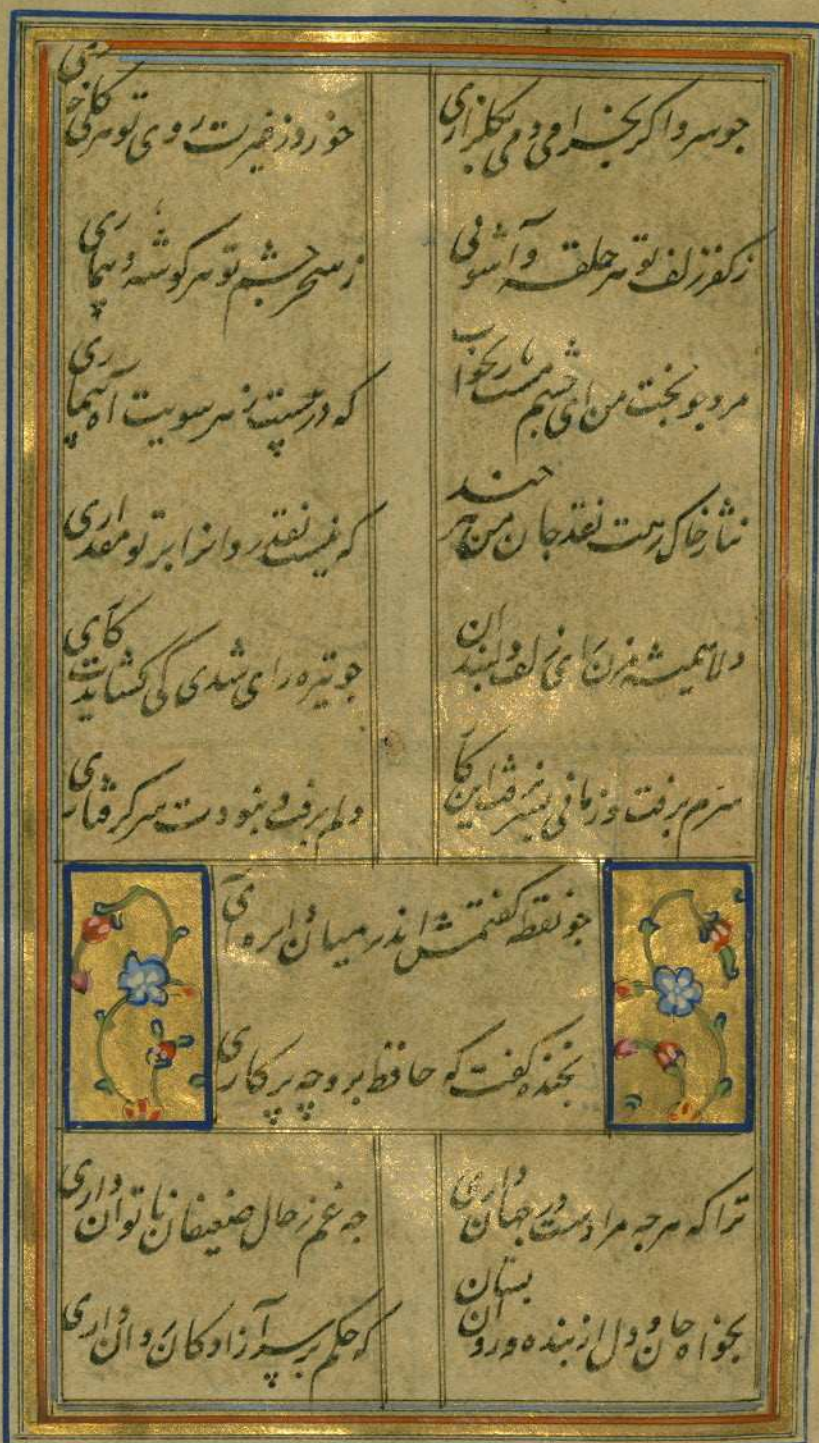 جو سرو اکر بخرامی دمی بکلزاری
خورد ز غیرت روی تو هر کلی خاری
ز کفر زلف تو هر حلقه و آشوبی
ز سحر چشم تو هر کوشه و بیماری
مرو جو بخت من ای چشم مست یار بخواب
که در پیست ز هر سویت آه بیماری
نثار خاک رهت نقد جان من هر چند
که نیست نقد روانرا بر تو مقداری
دلا همیشه مزن رای زلف دلبندان
جو تیره رای شدی کی کشایدت کاری
سرم برفت و زمانی بسر نرفت این کار
دلم برفت و نبودت سر کرفتاری
جو نقطه کفتمش اندر میان دایره آی
بخنده کفت که حافظ برو چه پرکاری
ترا که هرجه مرادست در جهان داری
جه غم ز حال ضعیفان ناتوان داری
بخواه جان و دل از بنده و روان بستان
که حکم بر سر آزادکان روان داری